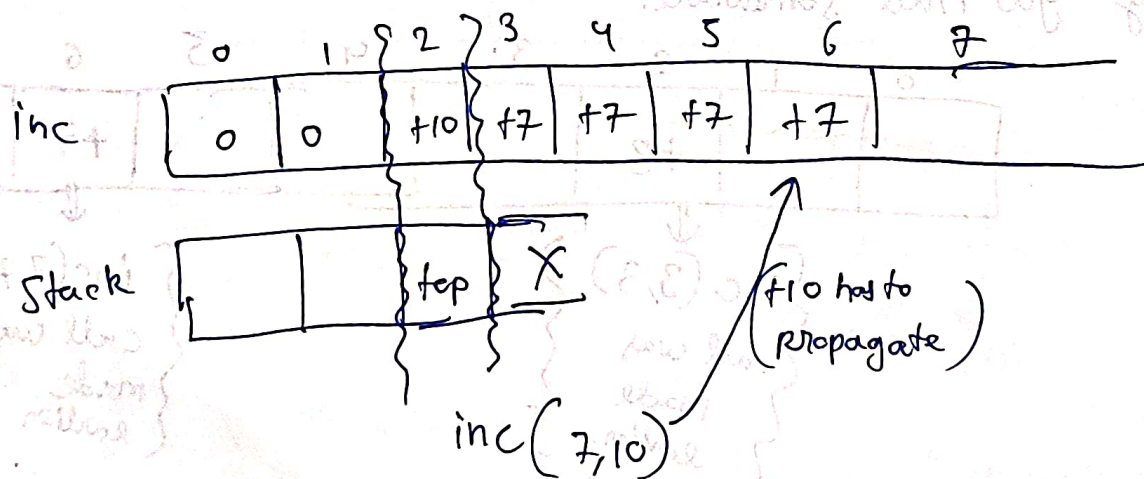 0 1 2 3 4 5 6 7
inc 0 0 +10 +7 +7 +7 +7
Stack top X
(+10 has to
propagate)
inc(7,10)